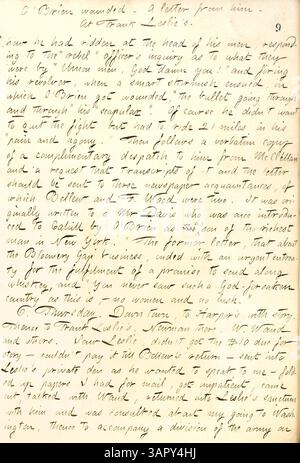 O'Brien wounded. A letter from him.
At Frank Leslie's.
9
how he had ridden at the head of his men, respond-
ing to the "rebel" officer's inquiry as to what they
were by "Union men, God damn you!" and firing
his revolver, when a smart skirmish ensued, in
which O'Brien got wounded, "the bullet going through
and through" his "scapular." Of course he didn't want
to quit the fight, but had to ride 21 miles in his
pain and agony. Then follows a verbatim copy
of a complimentary despatch to him from McClellan
and a request that transcripts of it and the letter
should be sent to three newspaper acquaintances, of
which Bellew and F. Wood were two. It was ori-
ginally written to a Mr Davis who was once introdu-
ced to Cahill by O'Brien as "the son of the richest
man in New York." The former letter, that about
the Bloomery Gap business, ended with an urgent entrea-
ty for the fulfilment of a promise to send along
whiskey, and "You never saw such a God-forsaken
country as this is, — no women and no lush."
6. Thursday. Downtown, to Harper's with story.
Thence to Frank Leslie's. Newman there, W. Waud
and others. Saw Leslie didn't get the $10 due for
story — couldn't pay it till Bellew's return — sent into
Leslie's private den as he wanted to speak to me — fold-
ed up papers I had for mail, got impatient, came
out, talked with Waud, returned into Leslie's sanctum
with him and was consulted about my going to Wash-
ington, thence to accompany a division of the army on
alamy
Image ID: 3APY4HJ
www.alamy.com